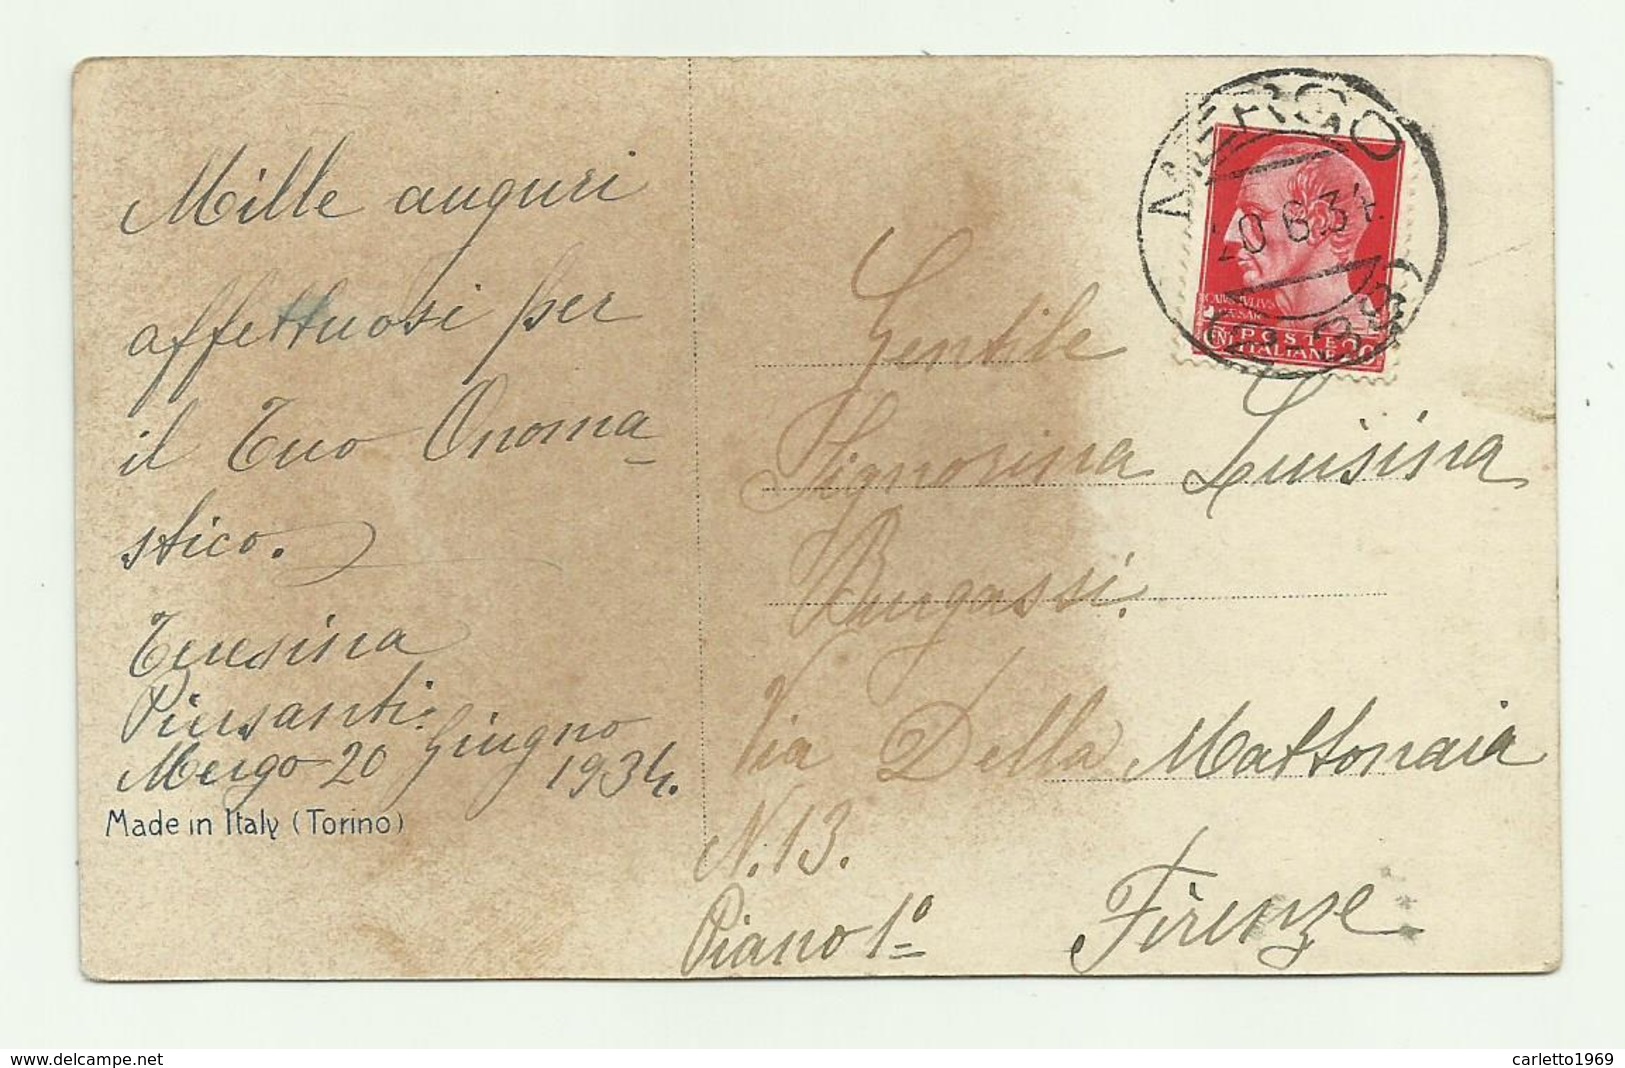 Mille auguri
affettuosi per
il Tuo Onoma-
stico.
Teresina
Piersanti.
Mergo 20 Giugno
1934.
Made in Italy (Torino)
MERGO
20.6.34.
POSTE
ITALIANE 20
Gentile
Signorina Luisina
Burgassi.
Via Della Mattonaia
N. 13.
Piano 1º
Firenze.
www.delcampe.net
carletto1969